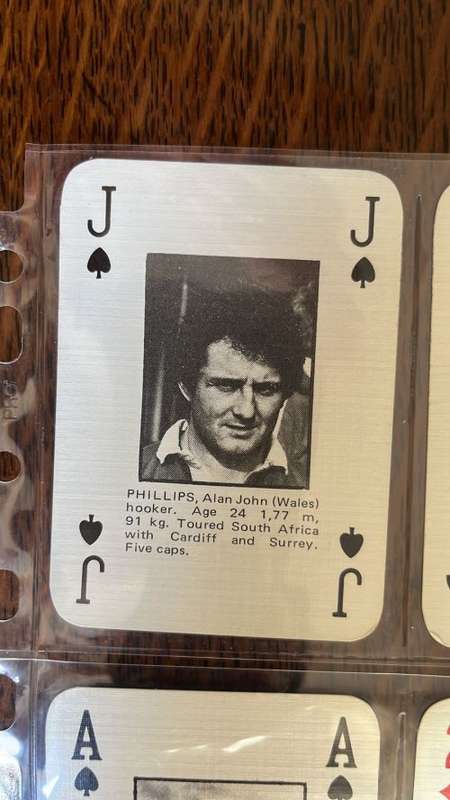 J J
PHILLIPS, Alan John (Wales)
hooker. Age 24 1,77 m,
91 kg. Toured South Africa
with Cardiff and Surrey.
Five caps.
J J
A A
2